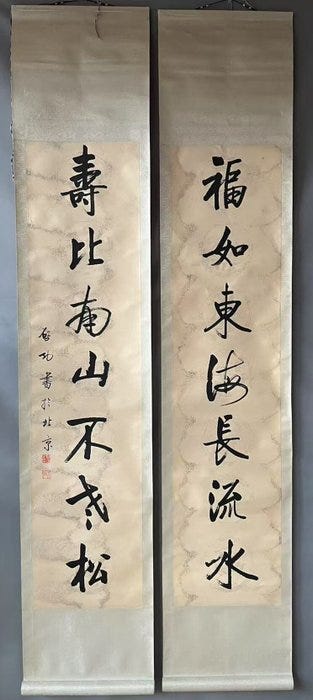 福如東海長流水
壽比南山不老松
啟功書於北京